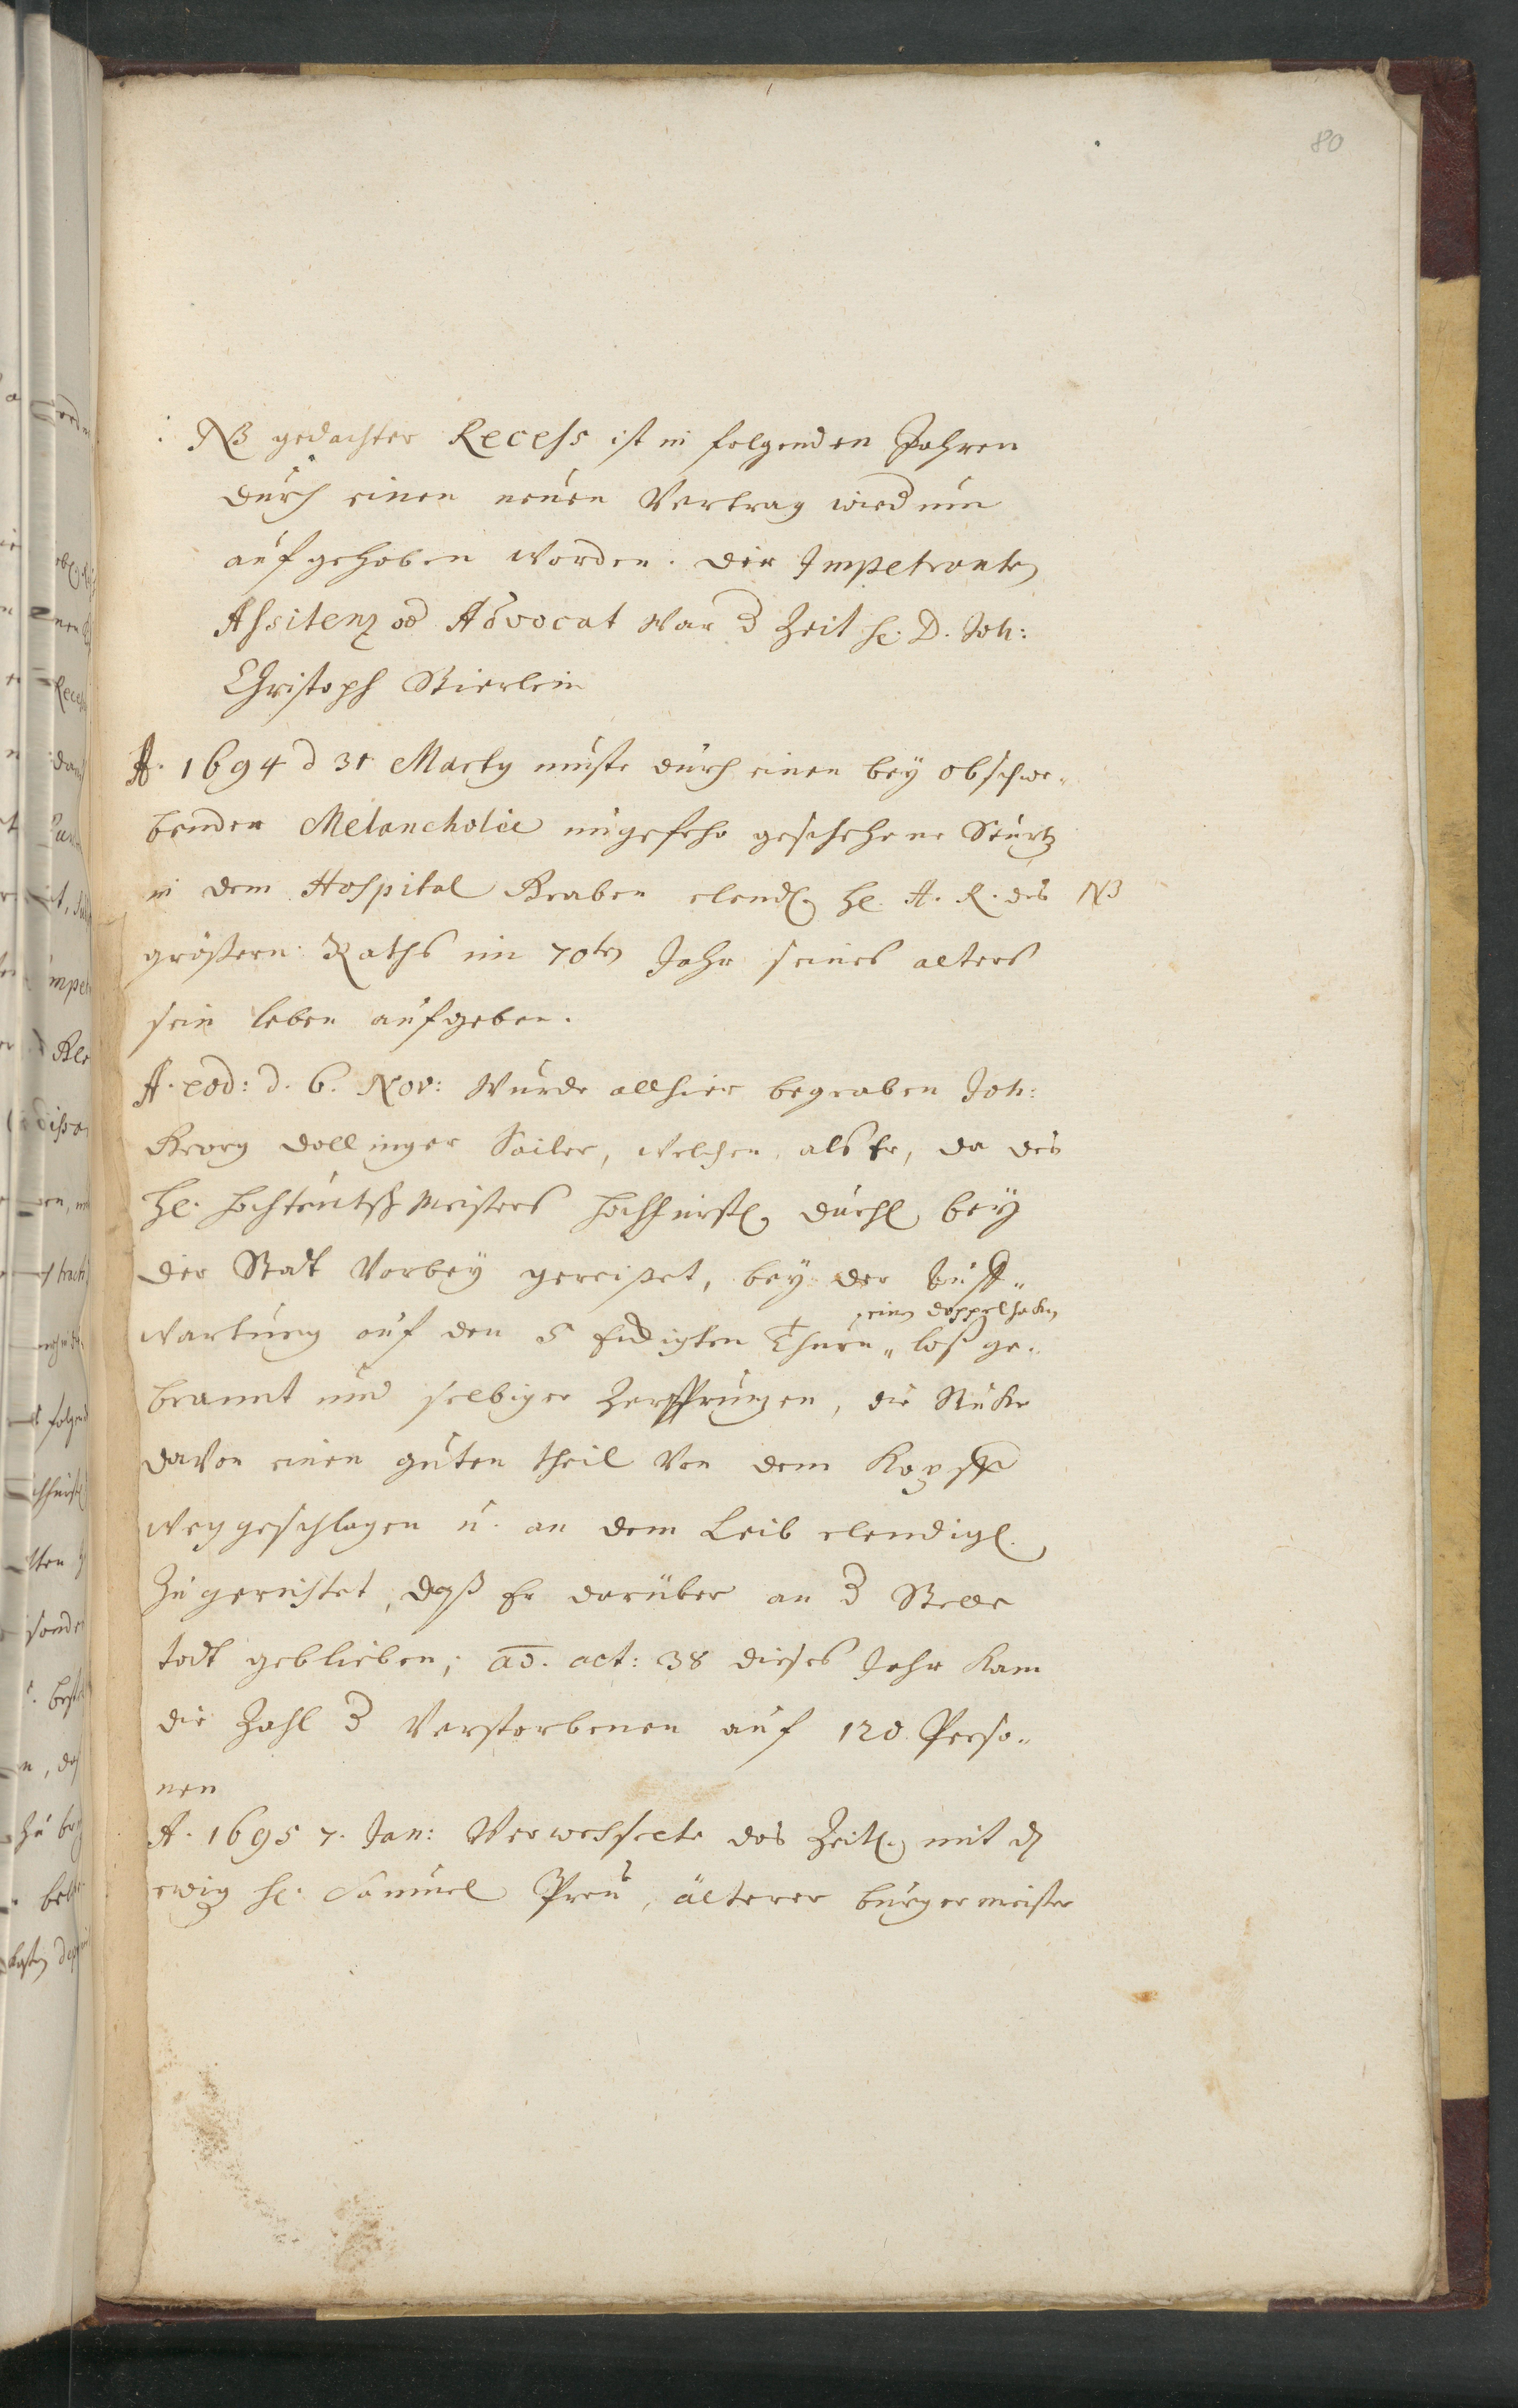 80
NB gedachter Recess ist in folgenden Jahren
durch einen neuen Vertrag wiederum
aufgehoben worden. der Impetranten
Assitenz od Advocat war d Zeit H. D. Joh:
Christoph Stierlein
A. 1694 d 31 Marty muste durch einen bey obschwe-
benden Melancholie ungefehr geschehene Sturtz
in dem Hospital Graben elendl. H. A. R. des NB
grössern Raths im 70ten Jahr seines alters
sein leben aufgeben.
A. eod: d. 6. Nov: wurde allhier begraben Joh:
Georg Dollinger Sailer, welchen als Er, da des
H. Hochteutschmeisters Hochfürstl. Durchl. bey
der Statt vorbey gereisset, bey der Auff-
einen doppelhaken
wartung auf den 5 Eckigten Thurn loss ge-
brannt und selbiger zersprungen, die Stücke
davon einen guten theil von dem Kopff
weggeschlagen u. an dem Leib elendigl.
zugerichtet, dass Er darüber an d Stelle
todt geblieben; aet: 38 dieses Jahr kam
die Zahl d Verstorbenen auf 120 Perso-
nen
A. 1695 7. Jan: Verwechselte das Zeitl. mit dem
ewig H. Samuel Preu, älterer burgermeister